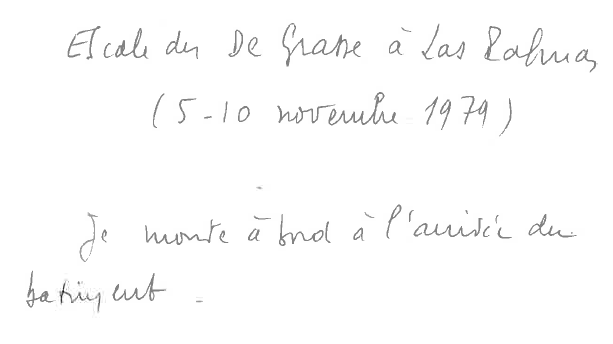 Escale du De Grasse à Las Palmas
(5-10 novembre 1979)
Je monte à bord à l'arrivée du
batiment.